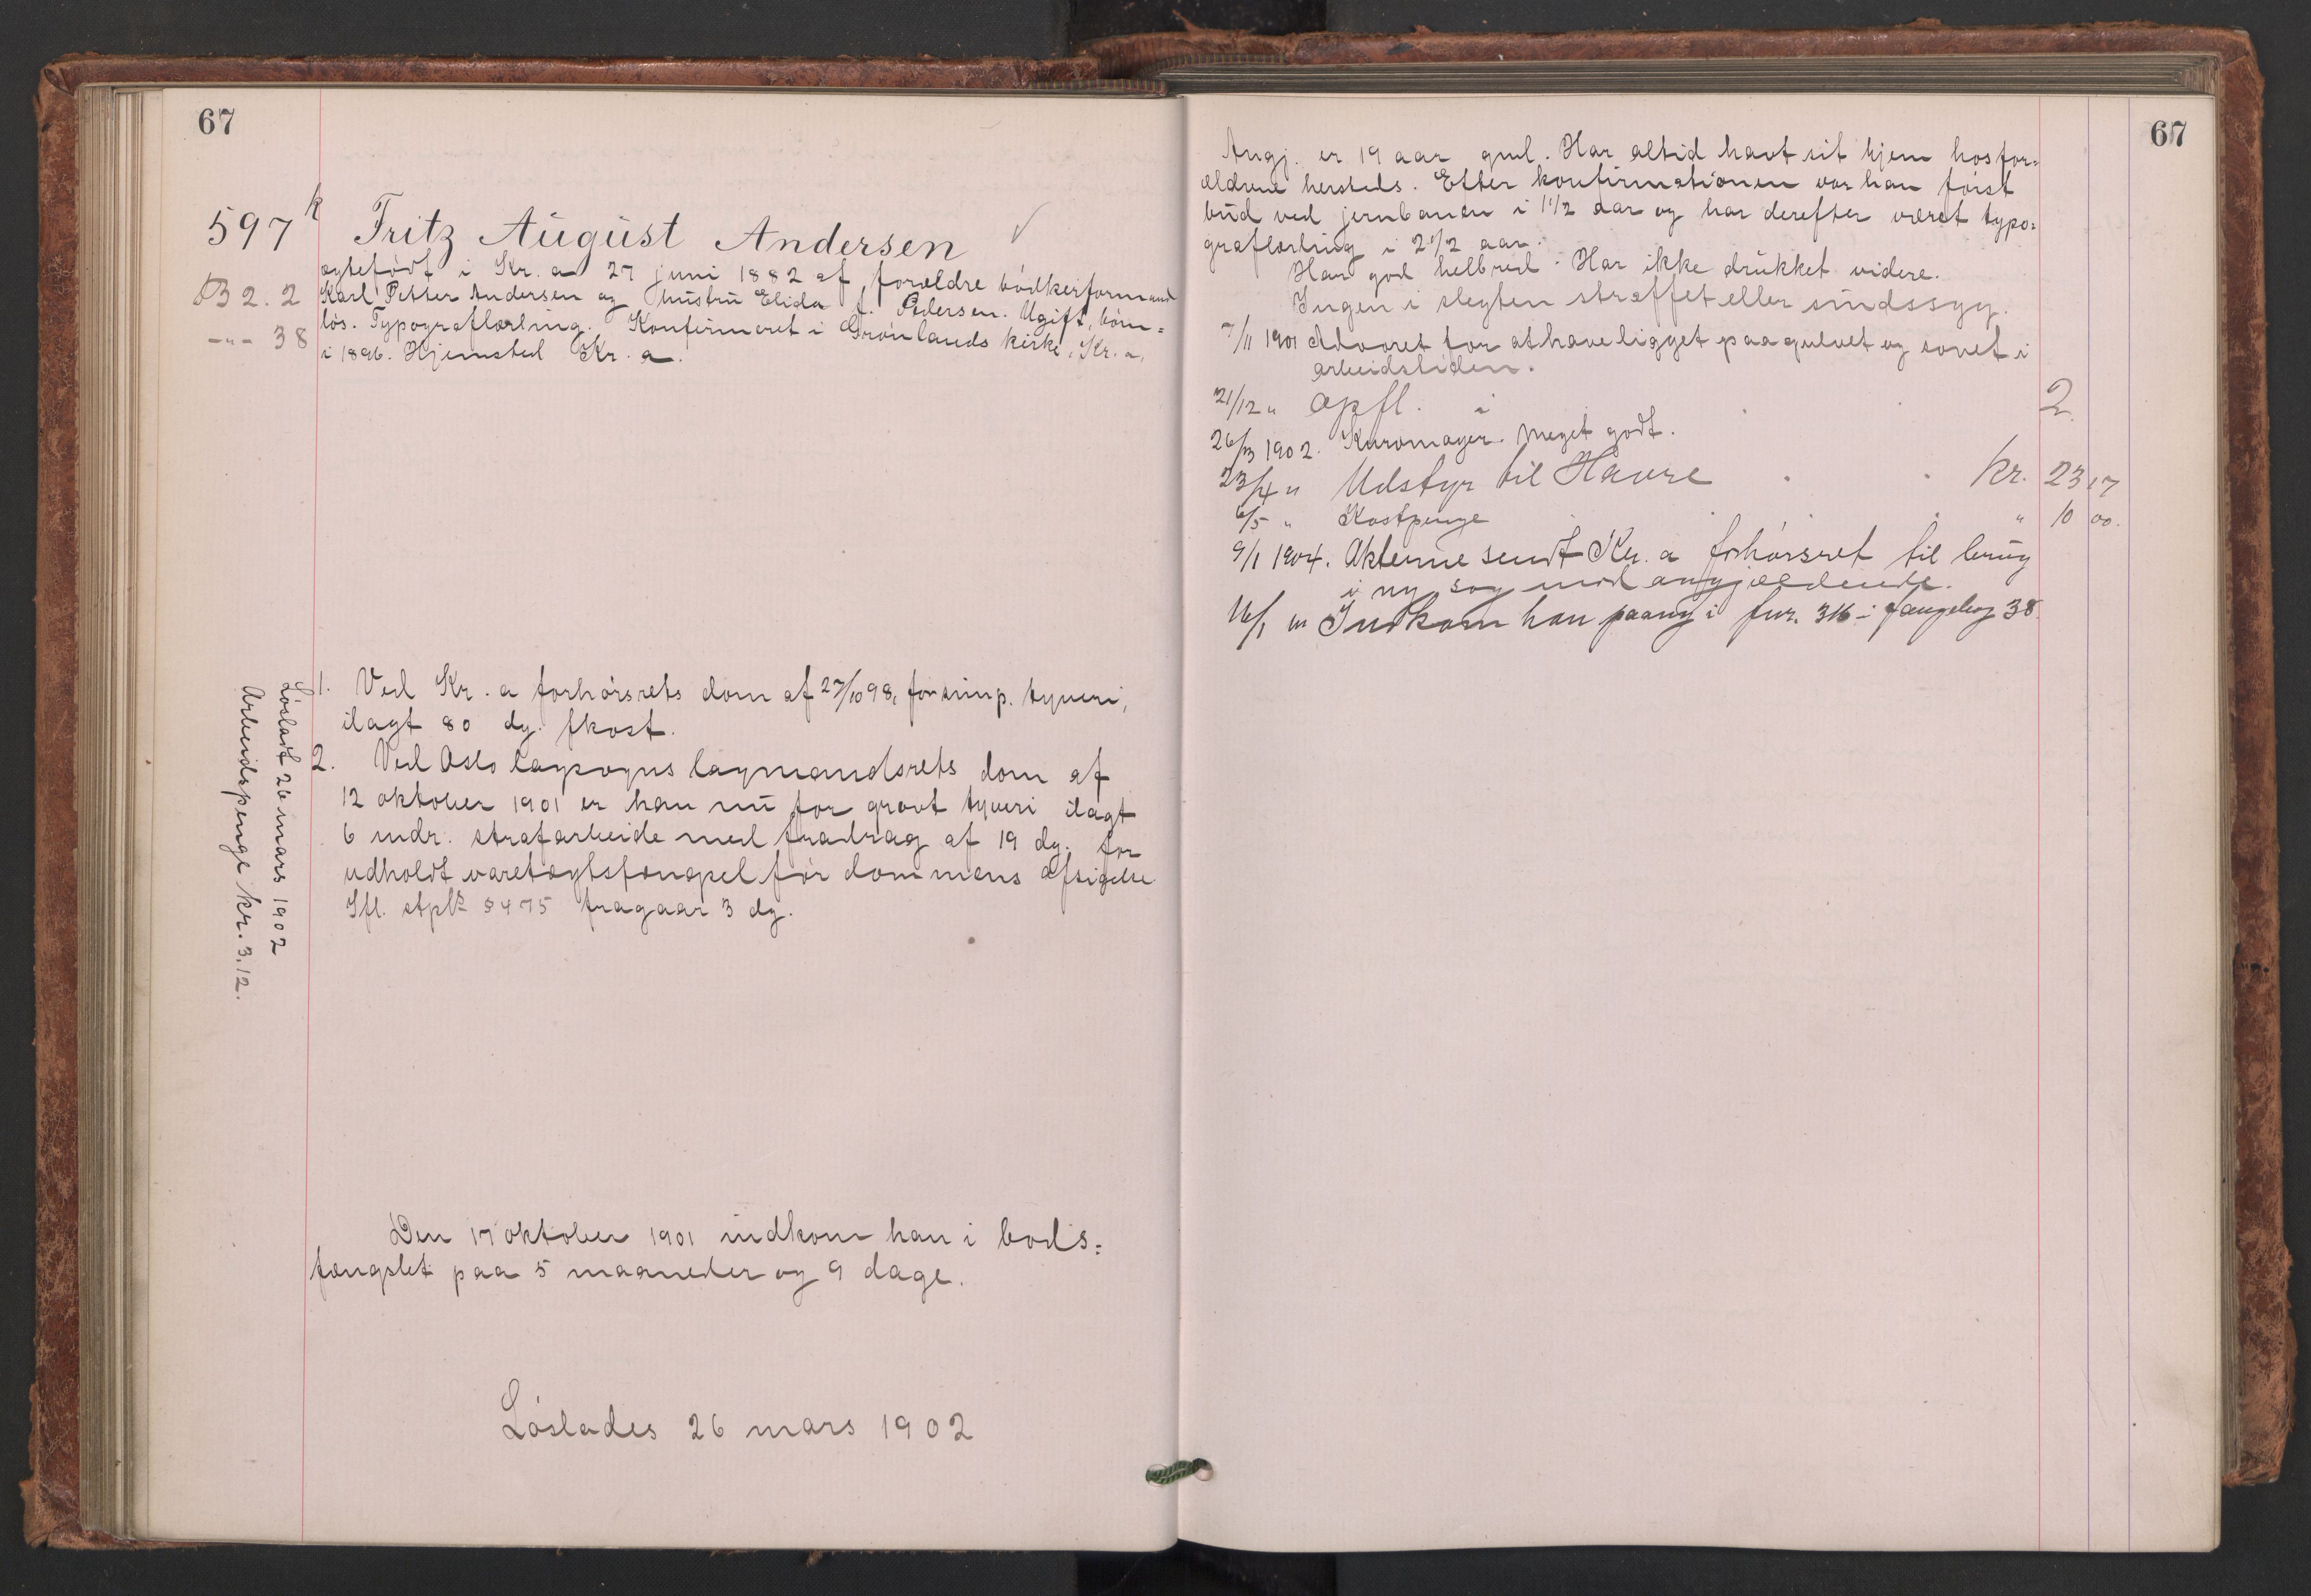 67
597 k Fritz August Andersen ✓
B 2. 2
-"- 38
ægtefødt i Kr.a 27 juni 1882 af forældre bødkerformand
Karl Petter Andersen og hustru Elida f. Pedersen. Ugift, børn=
løs. Typograflærling. Konfirmeret i Grønlands kirke, Kr.a,
i 1896. Hjemsted Kr.a.
1. Ved Kr.a forhørsrets dom af 27/10 98, for simp. tyveri,
ilagt 80 dg. fkost.
2. Ved Oslo lagsogns lagmandsrets dom af
12 oktober 1901 er han nu for grovt tyveri ilagt
6 mdr. strafarbeide med fradrag af 19 dg. for
udholdt varetægtsfængsel før dommens afsigelse
Ifl. stpl § 475 fragaar 3 dg.
Løsladt 26 mars 1902
Arbeidspenge kr. 3.12.
Den 17 oktober 1901 indkom han i bods=
fængslet paa 5 maaneder og 9 dage.
Løslades 26 mars 1902
67
Angj. er 19 aar gml. Har altid havt sit hjem hos for=
ældrene hersteds. Efter konfirmationen var han først
bud ved jernbanen i 1 1/2 aar og har derefter været typo=
graflærling i 2 1/2 aar.
Har god helbred. Har ikke drukket videre.
Ingen i slegten straffet eller sindssyg.
7/11 1901 Advaret for at have ligget paa gulvet og sovet i
arbeidstiden.
21/12 " Opfl. i 2
26/3 1902. Kurvmager. Meget godt.
23/4 " Udstyr til Havre kr. 23 17
6/5 " Kostpenge " 10 00.
9/1 1904. Akterne sendt Kr.a forhørsret til brug
i ny sag mod angjældende.
16/1 " Indkom han paany i fnr. 316 i fangebog 38